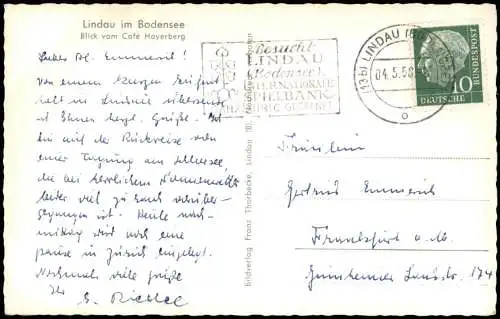 Lindau im Bodensee
Blick vom Café Hoyerberg
Besucht
LINDAU
(Bodensee)
INTERNATIONALE
SPIELBANK
GANZJÄHRIG GEÖFFNET
(13b) LINDAU (BODENSEE)
04.5.56
DEUTSCHE
BUNDESPOST
10
Liebes Frl. Emmerich!
Von einem kurzen Aufent-
halt in Lindau übersende
ich Ihnen herzl. Grüße. Ich
bin auf der Rückreise von
einer Tagung am
die bei herrlichem Sonnenwetter
leider viel zu rasch vorüber-
gegangen ist. Heute nach-
mittag wird noch eine
pause in Zürich eingelegt.
Nochmals viele Grüße
Ihr
Bildverlag Franz Thorbecke, Lindau (B)
Fräulein
Gertrud Emmerich
Frankfurt a. M.
Landstr. 174